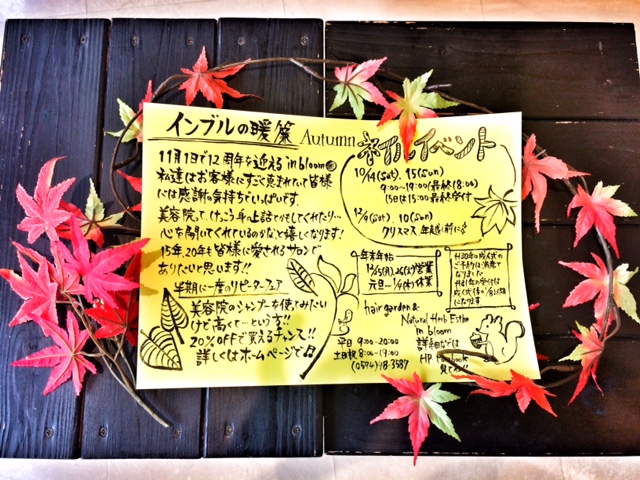 インブルの暖簾
Autumn
11月1日で12周年を迎える in bloom
私達はお客様にすごく恵まれていて皆様
には感謝の気持ちでいっぱいです。
美容院って、けっこう身の上話とかもしてくれたり…
心を開いてくれているのかなぁて嬉しくなります!
15年、20年も皆様に愛されるサロンで
ありたいと思います!!
半期に一度のリピーターフェア
美容院のシャンプーを使ってみたい
けど高くて…という方!!
20%OFFで買えるチャンス!!
詳しくはホームページで
ネイルイベント
10/14(sat), 15(sun)
9:00~19:00(最終18:00)
15日は15:00最終受付
12/9(sat), 10(sun)
クリスマス 年越し前に
年末年始
12/25(月), 26(火)営業
元旦~1/4(木)休業
H30年の成人式の
ご予約は満席と
なりました
hair garden &
Natural Herb Esthe
in bloom
平日 9:00~20:00
土日祝 8:00~19:00
(0594)48-3587
詳細などは
HP Facebook
見てね!!